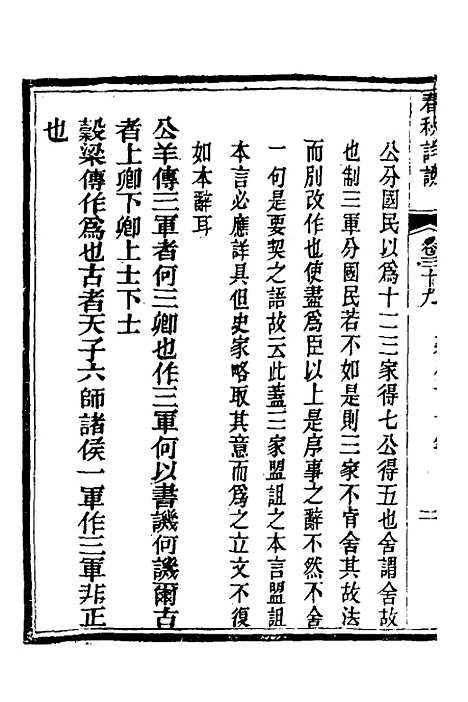 春秋詳說
卷三十九
二
公分國民以爲十二三家得七公得五也舍謂舍故
也制三軍分國民若不如是則三家不肯舍其故法
而別改作也使盡爲臣以上是序事之辭不然不舍
一句是要契之語故云此蓋三家盟詛之本言盟詛
本言必應詳具但史家略取其意而爲之立文不復
如本辭耳
公羊傳三軍者何三卿也作三軍何以書譏何譏爾古
者上卿下卿上士下士
穀梁傳作爲也古者天子六師諸侯一軍作三軍非正
也